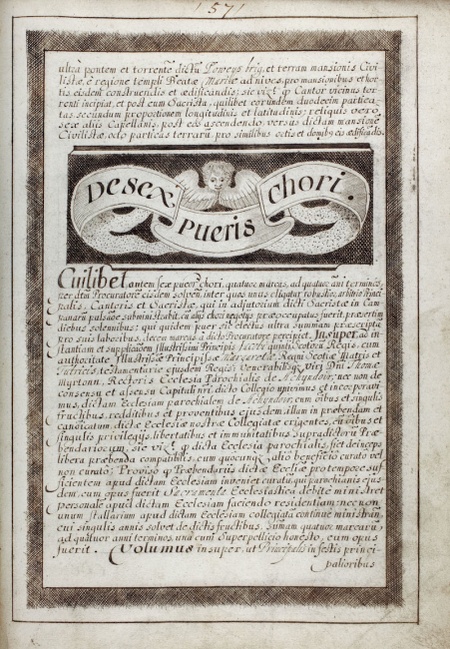 157
ultra pontem et torrentē dictū Poweys brig, et terram mansionis Civi-
listæ, e regione templi Beatæ Mariæ ad nives, pro mansionibus et hor-
tis eisdem construendis et ædificandis; sic vizt ꝙ Cantor vicinus tor-
renti incipiat, et post eum Sacrista, quilibet eorundem duodecim partica-
tas secundum proportionem longitudinis et latitudinis; reliquis vero
sex aliis Capellanis, post eos ascendendo versus dictam mansionē
Civilistæ, octo particas terrarū, pro similibus ortis et domibus ædificandis.
De sex pueris chori.
Cuilibet autem sex pueror chori, quatuor marcas, ad quatuor ani terminos,
per dm Procuratorē eisdem solven, inter quos unus eligatur robustior, arbitrio Princi-
palis, Cantoris et Sacristæ, qui in adjutorium dicti Sacristæ in Cam-
panarū pulsatōe subministrabit, cū aliis chori negotiis præoccupatus fuerit, præsertim
diebus solemnibus; qui quidem puer sic electus ultra summam præscriptā
pro suis laboribus, decem marcas a dicto Procuratore percipiet. Insuper, ad in-
stantiam et supplicatiōem illustrissimi Principis Jacobi quinti Scotorū Regis, cum
authoritate Illustrissimæ Principissæ Margaretæ Regni Scotiæ Matris et
Tutricis, testamentariæ ejusdem Regis; Venerabilisque Viri Dni Thomæ
Myrtonn, Rectoris Ecclesiæ Parochialis de Achyndoir, nec non de
consensu et assensu Capituli nri, dicto Collegio univimus et incorporavi-
mus, dictam Ecclesiam parochialem de Achyndoir, cum oībus et singulis
fructibus, redditibus et proventibus ejusdem, illam in præbendam et
canonicatū, dictæ Ecclesiæ nostræ Collegiatæ erigentes, cū oībus et
singulis privilegijs, libertatibus et immunitatibus Supradictorū Præ-
bendariorum; sic vizt ꝙ dicta Ecclesia parochialis, fiet deinceps
libera præbenda compatibilis, cum quocunque alio beneficio curato vel
non curato: Proviso ꝙ Præbendarius dictæ Eccliæ pro tempore suf-
ficientem apud dictam Ecclesiam inveniet curatū, qui parochianis ejus-
dem, cum opus fuerit Sacramenta Ecclesiastica debite ministret
personalē apud dictam Ecclesiam faciendo residentiam; nec non
unum Vallarium apud dictam Ecclesiam collegiatā continue ministran,
cui singulis annis solvet de dictis fructibus, Summam quatuor marcarū,
ad quatuor anni terminos, una cum Superpellicio honesto, cum opus
fuerit. Volumus insuper, ut Principalis in festis princi-
palioribus